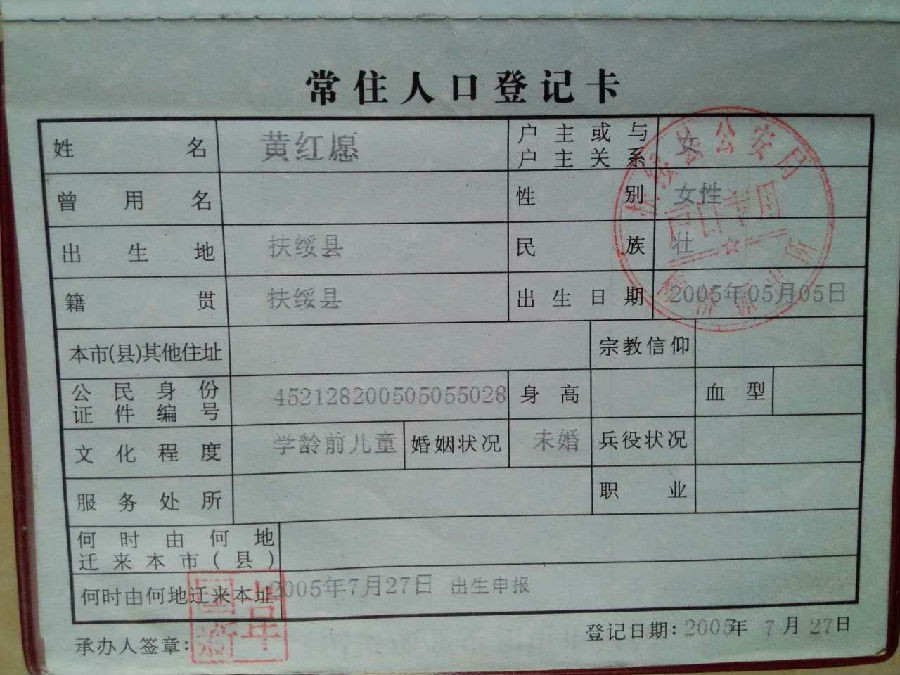 常住人口登记卡
姓名 黄红愿 户主或与户主关系 女
曾用名 性别 女性
出生地 扶绥县 民族 壮
籍贯 扶绥县 出生日期 2005年05月05日
本市(县)其他住址 宗教信仰
公民身份证件编号 452128200505055028 身高 血型
文化程度 学龄前儿童 婚姻状况 未婚 兵役状况
服务处所 职业
何时由何地迁来本市(县)
何时由何地迁来本址 2005年7月27日 出生申报
承办人签章: 登记日期: 2005年7月27日